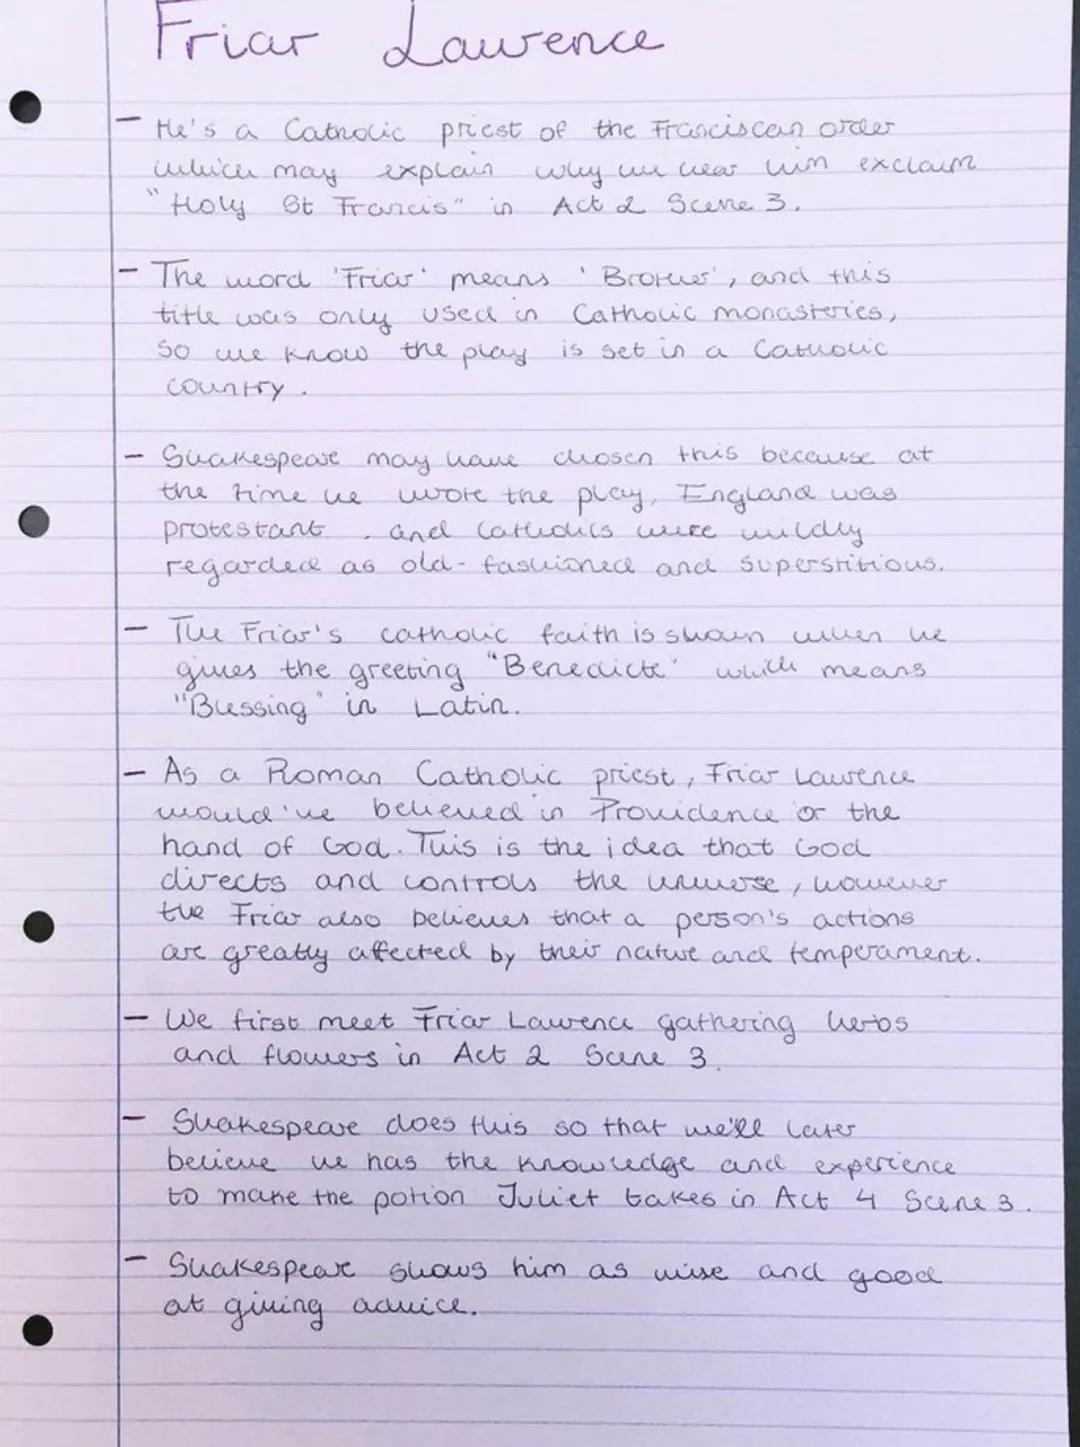 Friar Lawrence
- He's a Catholic priest of the Franciscan order
which may explain why we hear him exclaim
"Holy St Francis" in Act 2 Scene 3.
- The word 'Friar' means 'Brother', and this
title was only used in Catholic monasteries,
so we know the play is set in a Catholic
country.
- Shakespeare may have chosen this because at
the time he wrote the play, England was
protestant. and Catholics were mildly
regarded as old-fashioned and superstitious.
- The Friar's catholic faith is shown when he
gives the greeting "Benedicte" which means
"Blessing" in Latin.
- As a Roman Catholic priest, Friar Lawrence
would've believed in Providence or the
hand of God. This is the idea that God
directs and controls the universe, however
the Friar also believes that a person's actions
are greatly affected by their nature and temperament.
- We first meet Friar Lawrence gathering herbs
and flowers in Act 2 Scene 3.
- Shakespeare does this so that we'll later
believe he has the knowledge and experience
to make the potion Juliet takes in Act 4 Scene 3.
- Shakespeare shows him as wise and good
at giving advice.